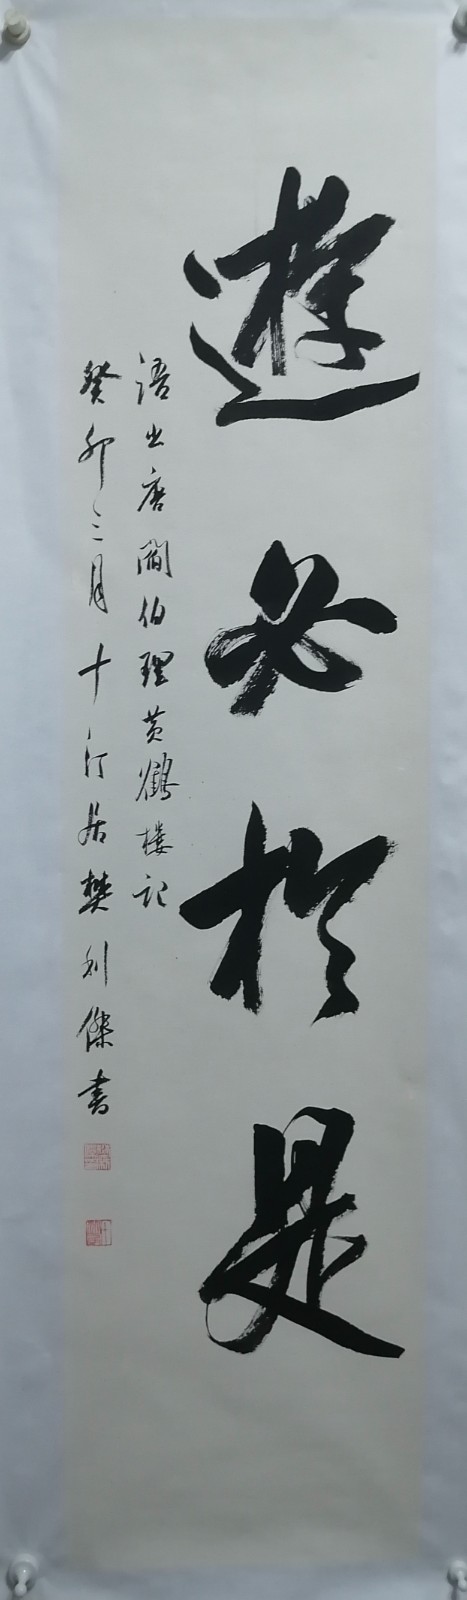 遊必於是
語出唐閻伯理黃鶴樓記
癸卯三月十汀居樊利傑書